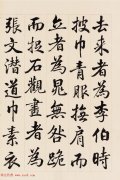 去來者為李伯時
披巾青服撫肩而
立者為晁無咎跪
而捉石觀畫者為
張文潛道巾素衣